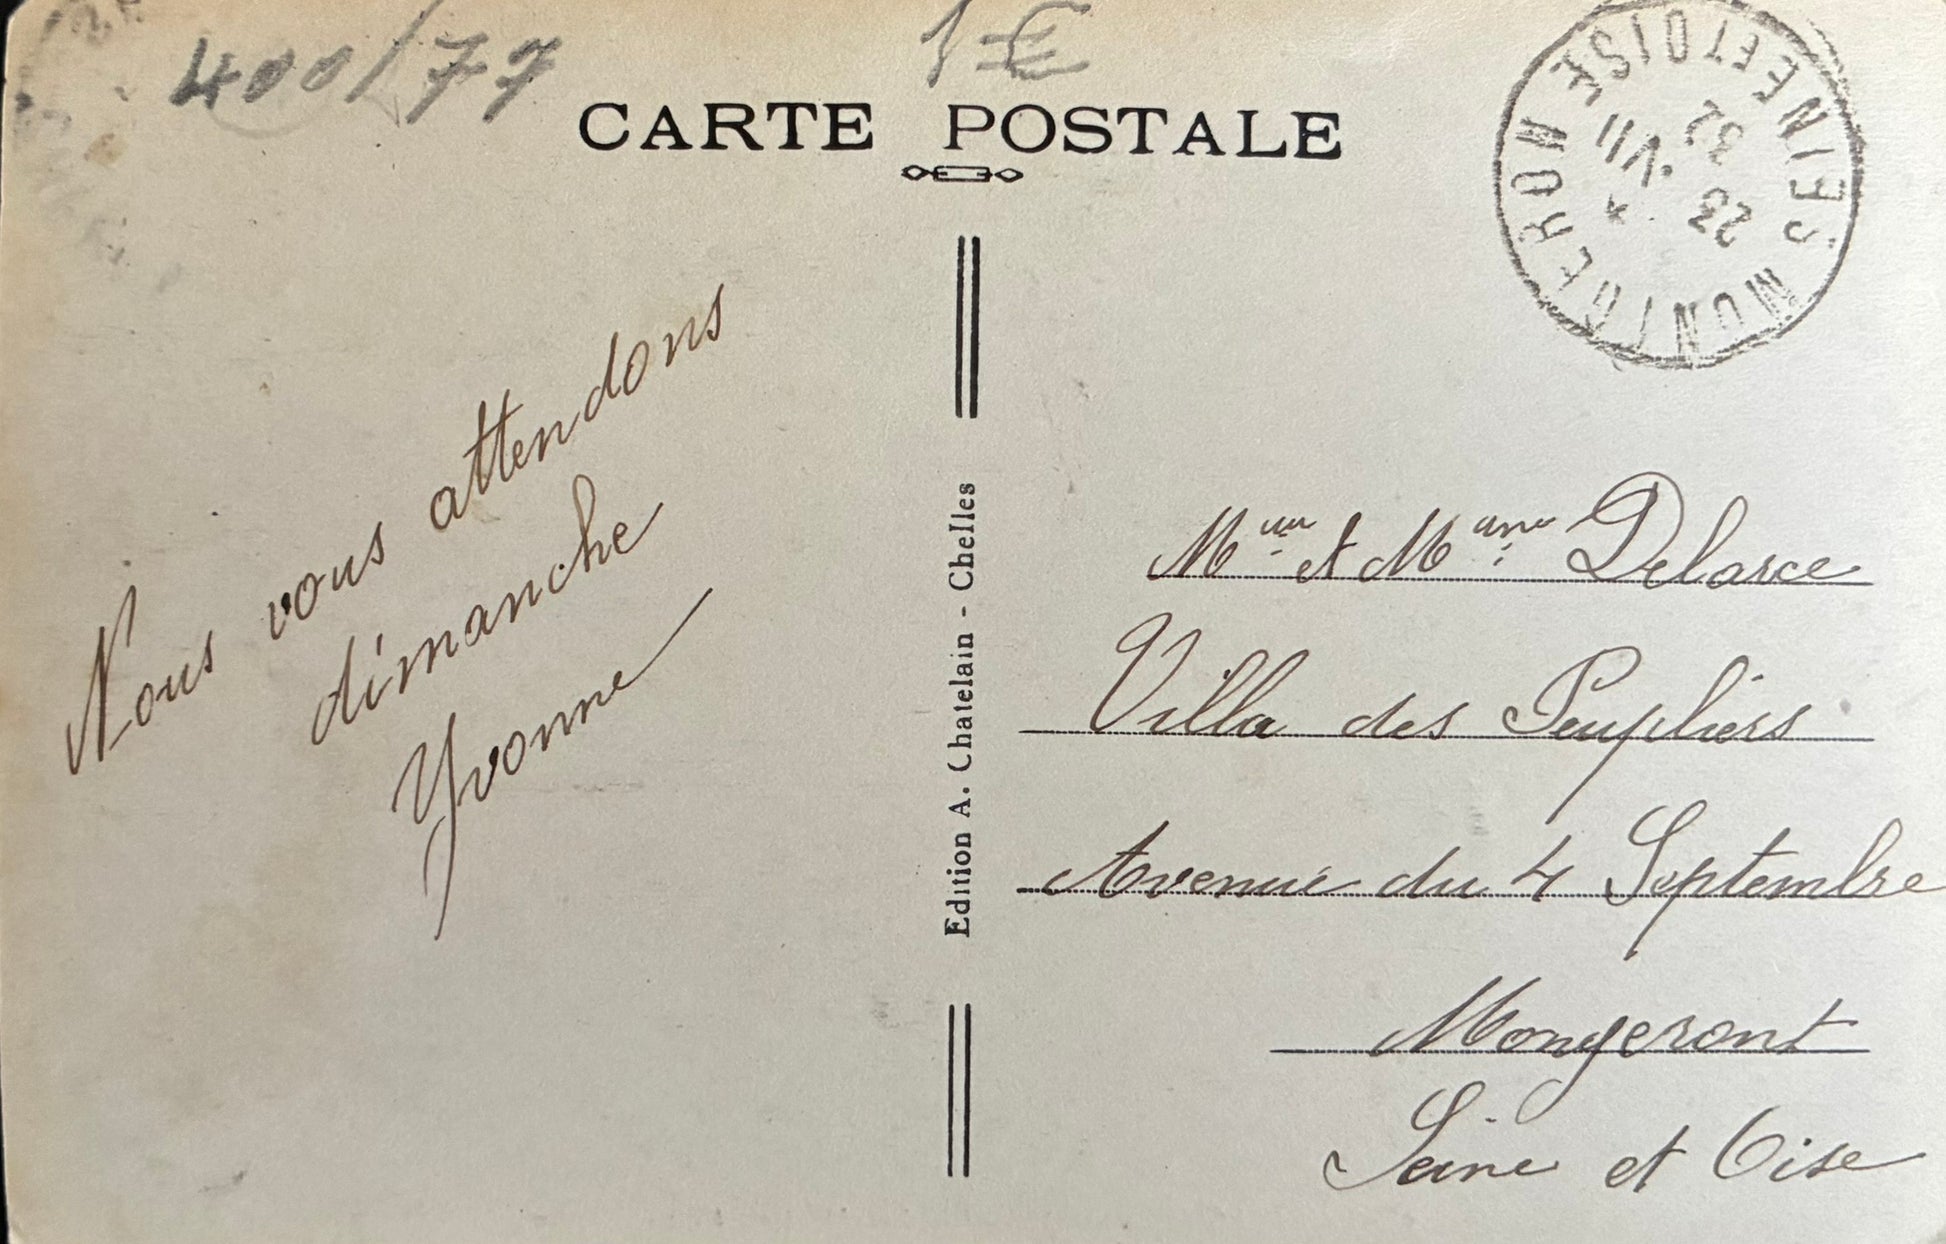 400/77
1 €
CARTE POSTALE
MONTGERON SEINE ET OISE
MONTGERON
23
VII
32
Nous vous attendons
dimanche
Yvonne
Edition A. Chatelain - Chelles
et Mme Delarce
Villa des Peupliers
Avenue du 4 Septembre
Mongeront
Seine et Oise